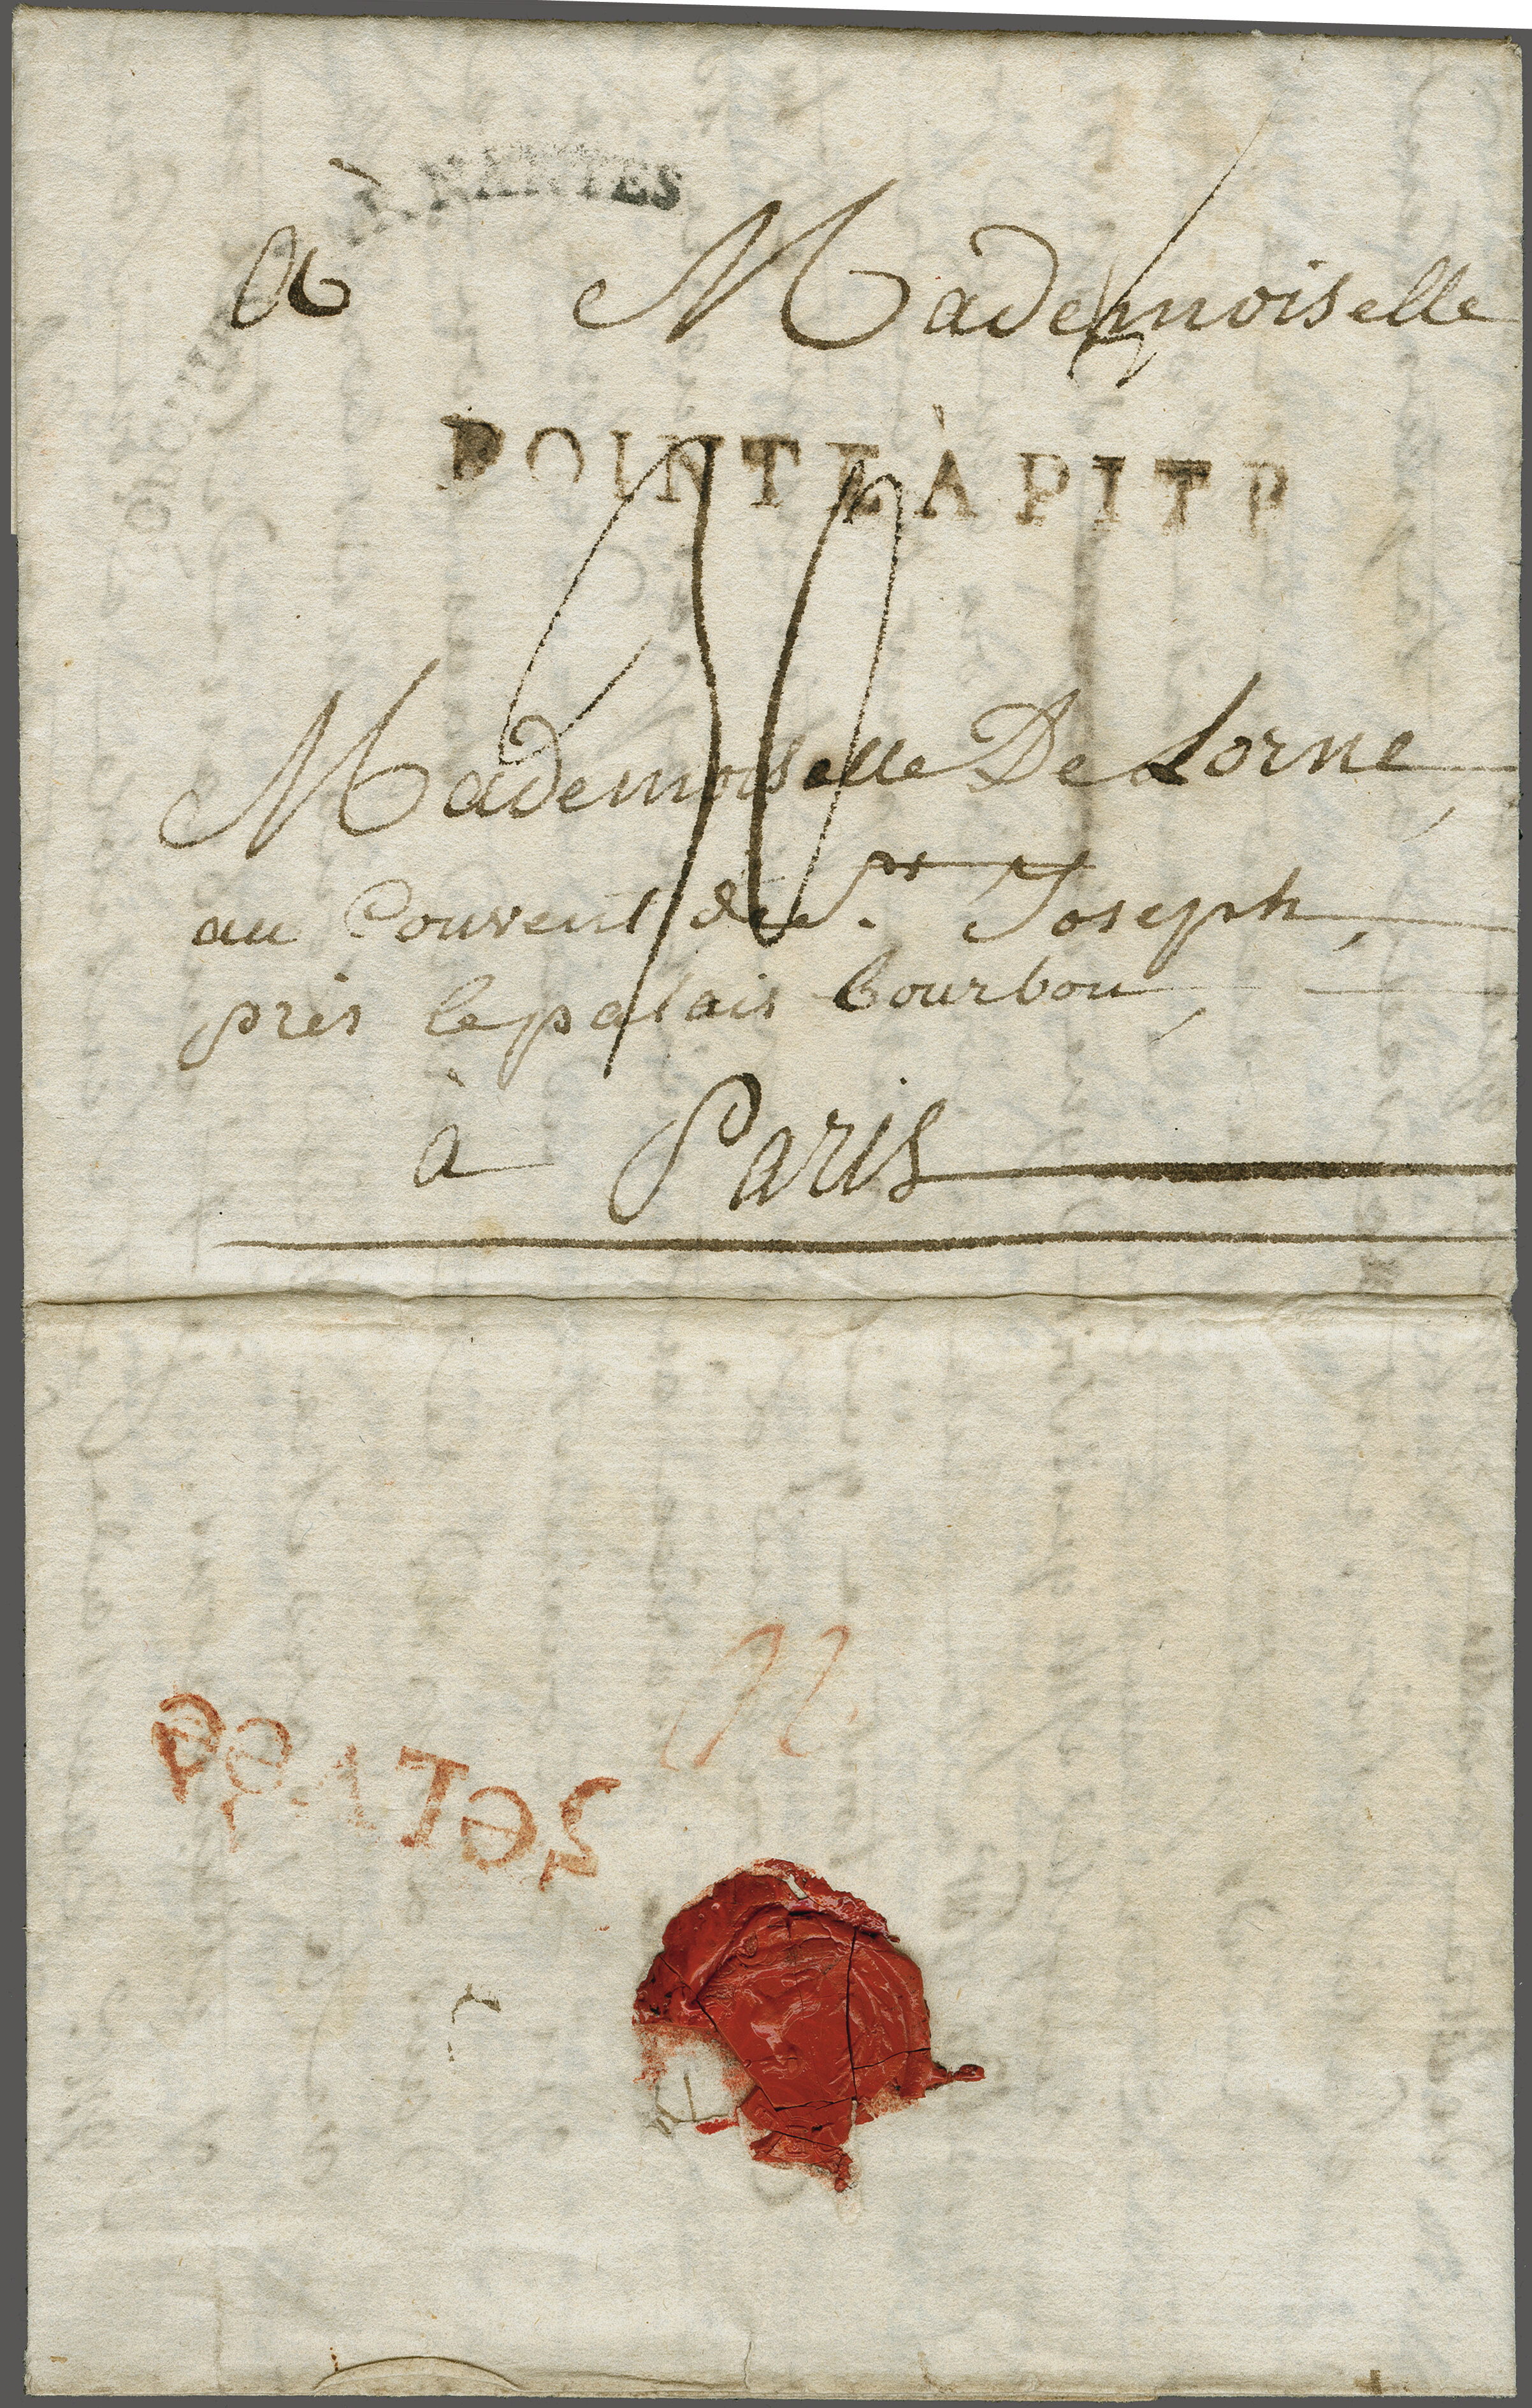 À NANTES
À Mademoiselle
POINTE À PITRE
Mademoiselle De Lorne,
au Couvent de St. Joseph,
près le palais bourbon,
à Paris